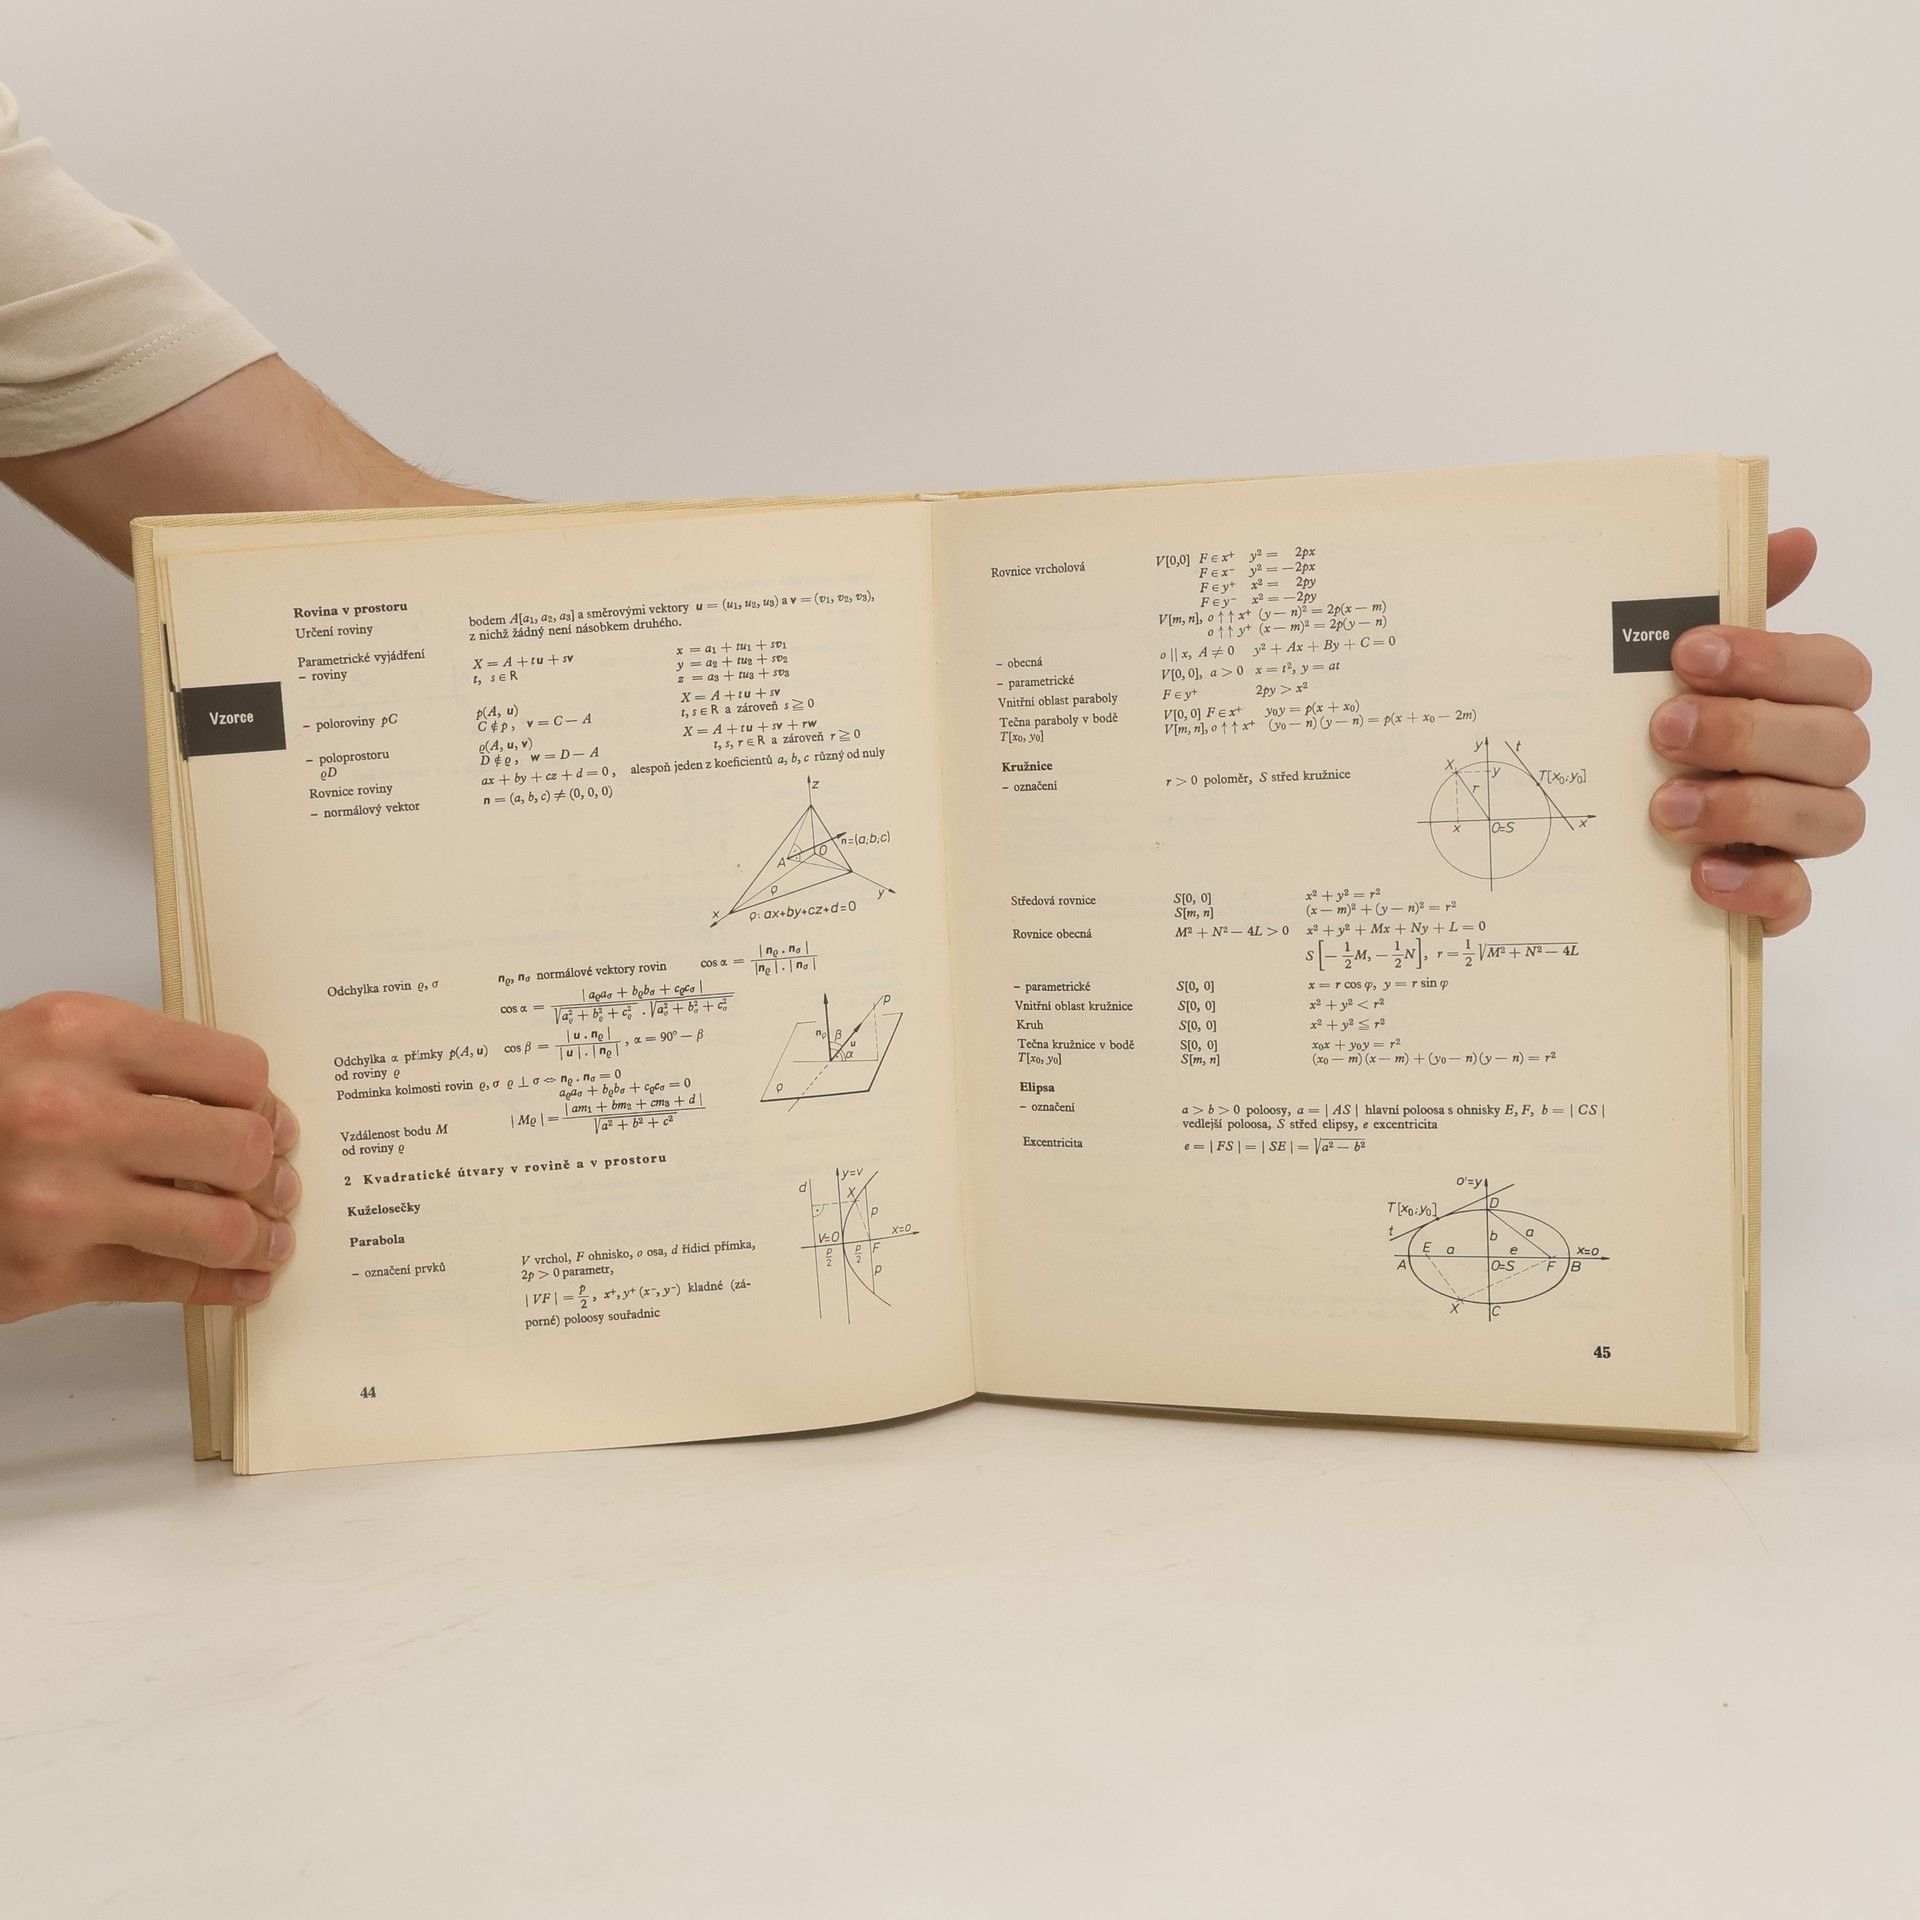 Vzorce
Rovina v prostoru
Určení roviny bodem A[a₁, a₂, a₃] a směrovými vektory u = (u₁, u₂, u₃) a v = (v₁, v₂, v₃),
z nichž žádný není násobkem druhého.
Parametrické vyjádření
– roviny X = A + tu + sv x = a₁ + tu₁ + sv₁
t, s ∈ R y = a₂ + tu₂ + sv₂
z = a₃ + tu₃ + sv₃
– poloroviny pC p(A, u) X = A + tu + sv
C ∉ p, v = C — A t, s ∈ R a zároveň s ≧ 0
– poloprostoru ϱ(A, u, v) X = A + tu + sv + rw
ϱD D ∉ ϱ, w = D — A t, s, r ∈ R a zároveň r ≧ 0
Rovnice roviny ax + by + cz + d = 0, alespoň jeden z koeficientů a, b, c různý od nuly
– normálový vektor n = (a, b, c) ≠ (0, 0, 0)
z
n=(a;b;c)
A O
ϱ
x y
ϱ: ax+by+cz+d=0
Odchylka rovin ϱ, σ nϱ, nσ normálové vektory rovin cos α = |nϱ . nσ| / |nϱ| . |nσ|
cos α = |aϱaσ + bϱbσ + cϱcσ| / √(aϱ² + bϱ² + cϱ²) . √(aσ² + bσ² + cσ²)
Odchylka α přímky p(A, u) cos β = |u . nϱ| / |u| . |nϱ|, α = 90° — β
od roviny ϱ
p
nϱ β u α
ϱ
Podmínka kolmosti rovin ϱ, σ ϱ ⊥ σ ⇔ nϱ . nσ = 0
aϱaσ + bϱbσ + cϱcσ = 0
Vzdálenost bodu M |Mϱ| = |am₁ + bm₂ + cm₃ + d| / √(a² + b² + c²)
od roviny ϱ
2 Kvadratické útvary v rovině a v prostoru
Kuželosečky
Parabola
– označení prvků V vrchol, F ohnisko, o osa, d řídicí přímka,
2p > 0 parametr,
|VF| = p/2, x⁺, y⁺ (x⁻, y⁻) kladné (zá-
porné) poloosy souřadnic
d y=v
X
p
V=O x=o
p/2 p/2 F
p
44
Vzorce
Rovnice vrcholová V[0,0] F ∈ x⁺ y² = 2px
F ∈ x⁻ y² = —2px
F ∈ y⁺ x² = 2py
F ∈ y⁻ x² = —2py
V[m, n], o ↑↑ x⁺ (y — n)² = 2p(x — m)
o ↑↑ y⁺ (x — m)² = 2p(y — n)
– obecná o || x, A ≠ 0 y² + Ax + By + C = 0
– parametrické V[0, 0], a > 0 x = t², y = at
Vnitřní oblast paraboly F ∈ y⁺ 2py > x²
Tečna paraboly v bodě V[0, 0] F ∈ x⁺ y₀y = p(x + x₀)
T[x₀, y₀] V[m, n], o ↑↑ x⁺ (y₀ — n)(y — n) = p(x + x₀ — 2m)
Kružnice
– označení r > 0 poloměr, S střed kružnice
y t
X y T[x₀;y₀]
r
x O=S x
Středová rovnice S[0, 0] x² + y² = r²
S[m, n] (x — m)² + (y — n)² = r²
Rovnice obecná M² + N² — 4L > 0 x² + y² + Mx + Ny + L = 0
S[— 1/2 M, — 1/2 N], r = 1/2 √(M² + N² — 4L)
– parametrické S[0, 0] x = r cos φ, y = r sin φ
Vnitřní oblast kružnice S[0, 0] x² + y² < r²
Kruh S[0, 0] x² + y² ≦ r²
Tečna kružnice v bodě S[0, 0] x₀x + y₀y = r²
T[x₀, y₀] S[m, n] (x₀ — m)(x — m) + (y₀ — n)(y — n) = r²
Elipsa
– označení a > b > 0 poloosy, a = |AS| hlavní poloosa s ohnisky E, F, b = |CS|
vedlejší poloosa, S střed elipsy, e excentricita
Excentricita e = |FS| = |SE| = √(a² — b²)
o'=y
T[x₀;y₀] D
t b a
E a e x=o
A O=S F B
X C
45